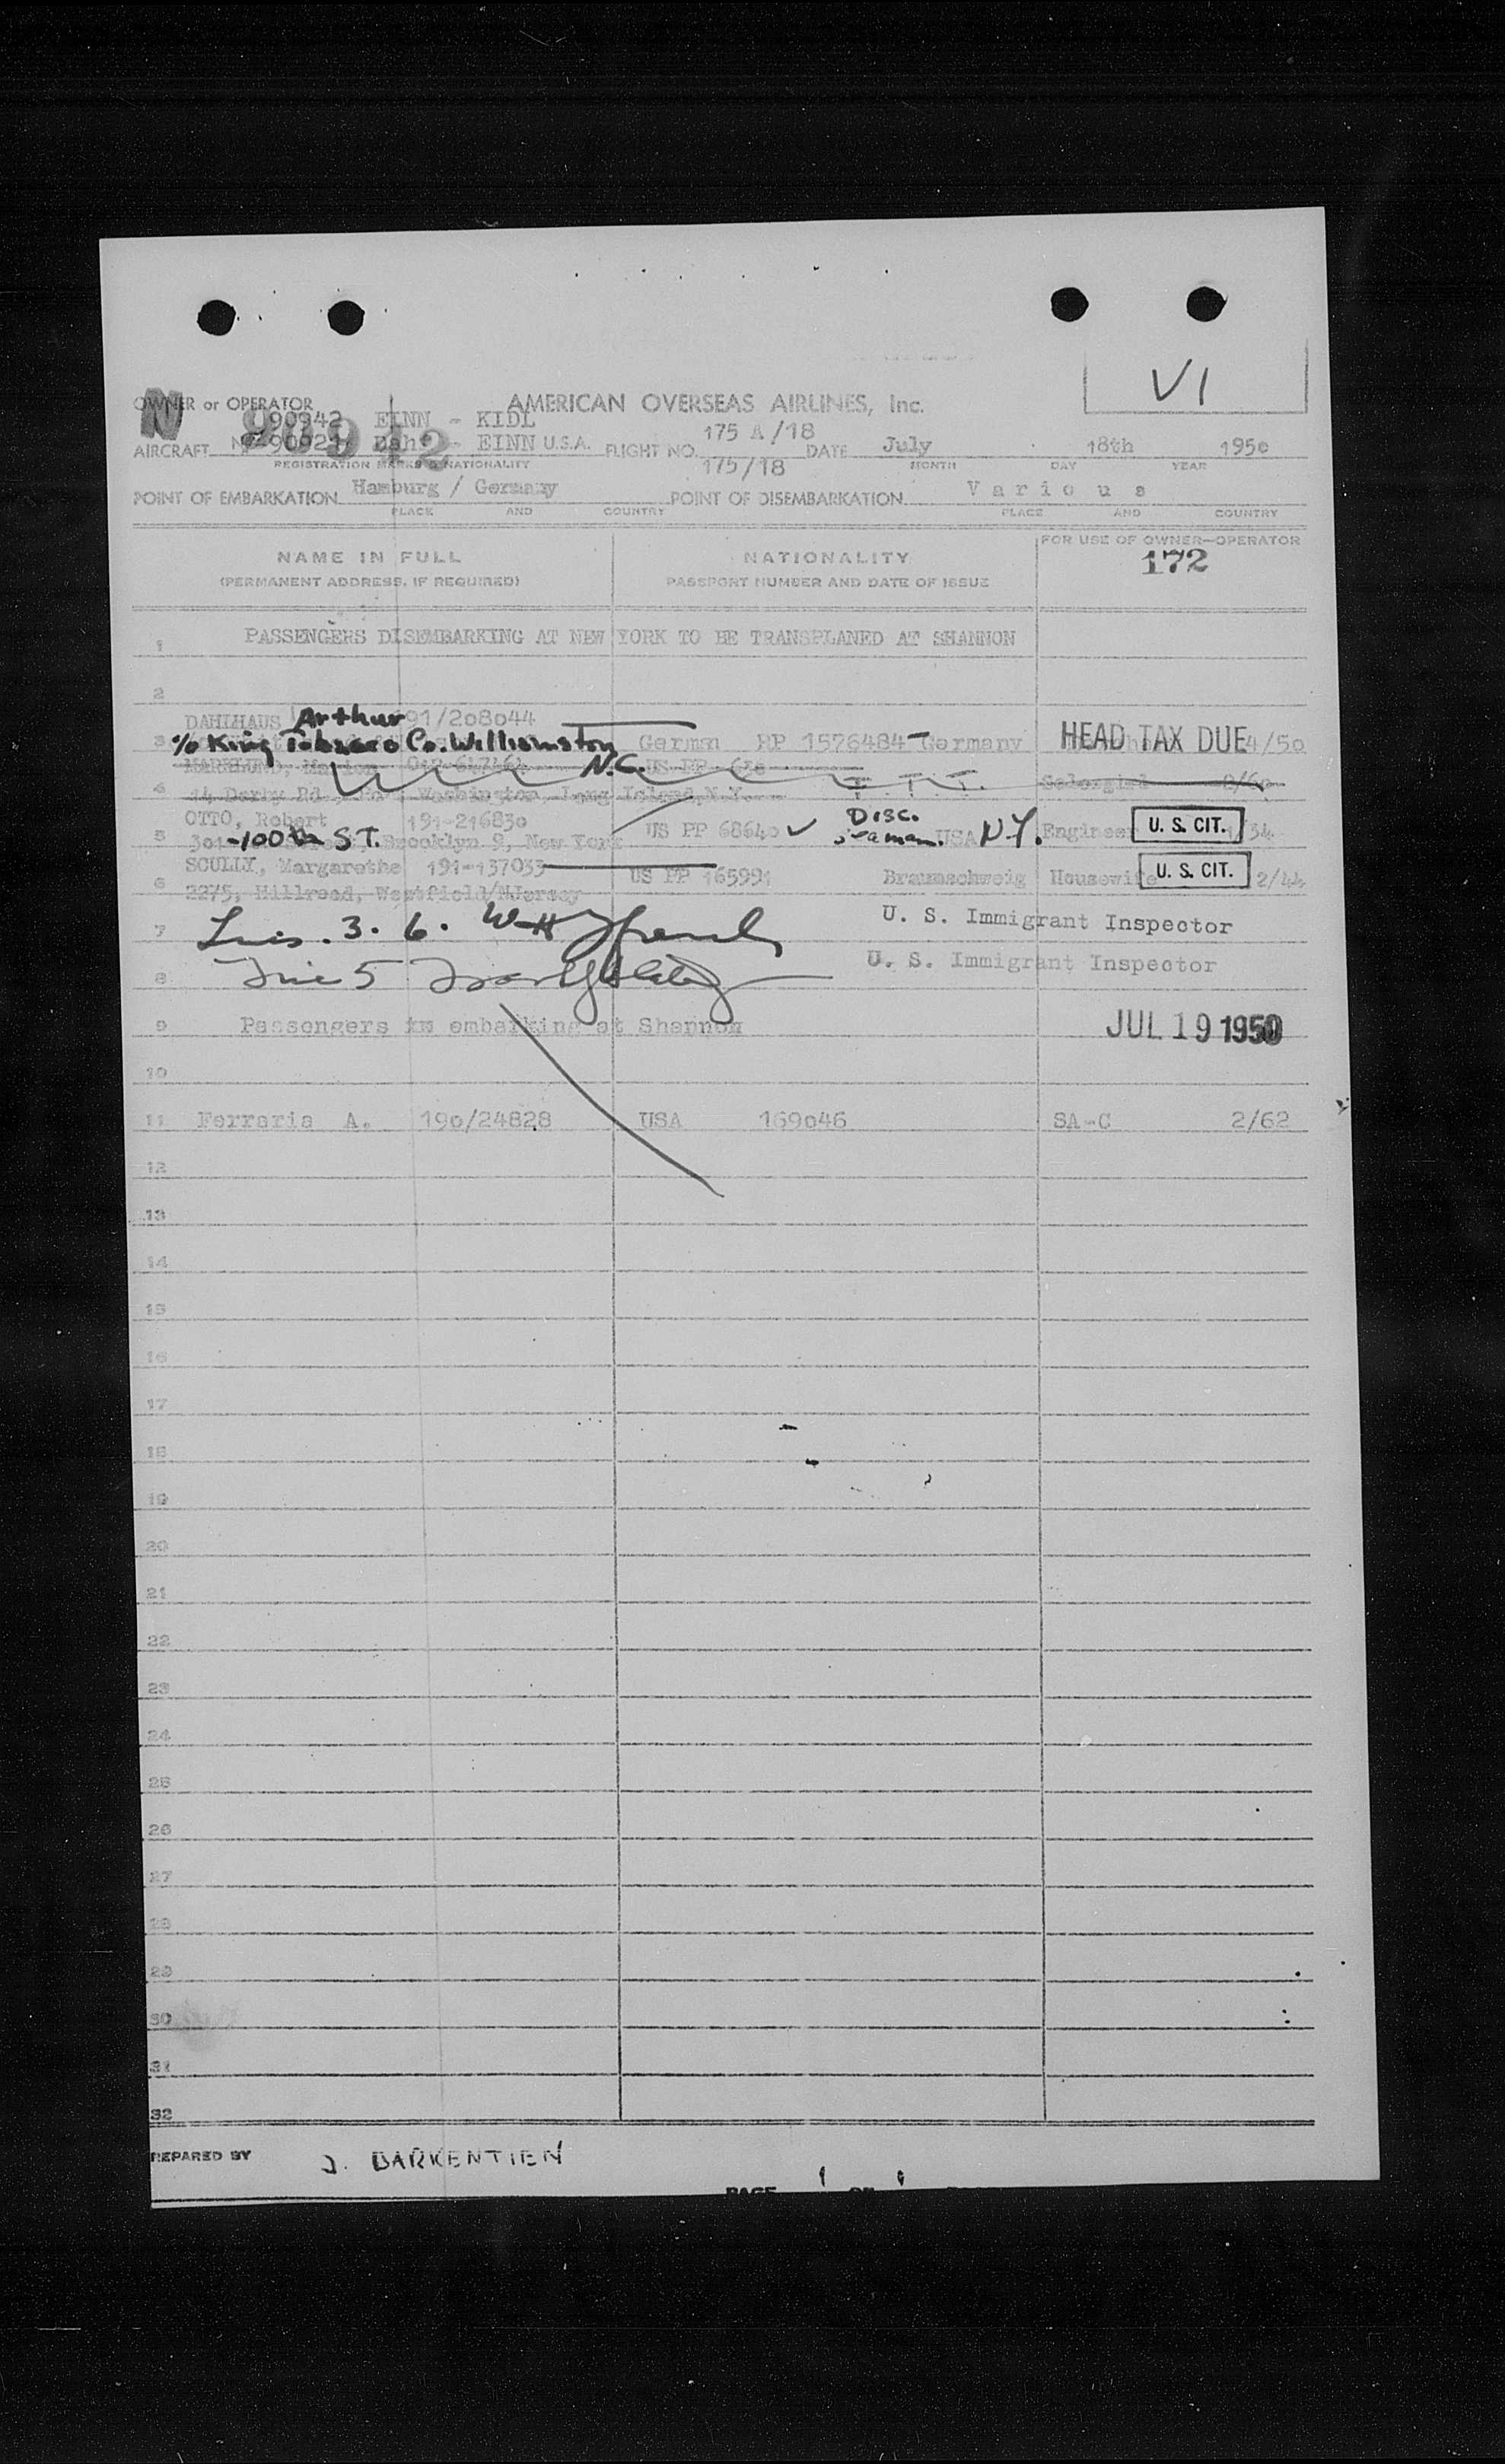 VI
OWNER or OPERATOR AMERICAN OVERSEAS AIRLINES, Inc.
N 90942
90942 EINN - KIDL
175 A/18
AIRCRAFT EINN U.S.A. FLIGHT NO. 175/18 DATE July 18th 1950
REGISTRATION MARKS & NATIONALITY MONTH DAY YEAR
POINT OF EMBARKATION Hamburg / Germany POINT OF DISEMBARKATION Various
PLACE AND COUNTRY PLACE AND COUNTRY
NAME IN FULL NATIONALITY FOR USE OF OWNER—OPERATOR
(PERMANENT ADDRESS, IF REQUIRED) PASSPORT NUMBER AND DATE OF ISSUE 172
1 PASSENGERS DISEMBARKING AT NEW YORK TO BE TRANSPLANED AT SHANNON
2
DAHLHAUS Arthur 191/208044
3 % King Tobacco Co. Williamston N.C. German PP 1576484 Germany HEAD TAX DUE 4/50
MARKLUND, 
4 14 Derby Rd Washington, Long Island, N.Y.
OTTO, Robert 191-216830 Disc.
5 301-100th ST. Brooklyn 9, New York US PP 68640 Seaman. USA N.Y. Engineer U. S. CIT. /34
SCULLY, Margarethe 191-137033
6 2275, Hillroad, Westfield/NJersey US PP 165991 Braunschweig Housewife U. S. CIT. 2/44
7 Lines. 3. 6. U. S. Immigrant Inspector
8 Line 5 U. S. Immigrant Inspector
9 Passengers embarking at Shannon JUL 19 1950
10
11 Ferraria A. 190/24828 USA 169046 SA-C 2/62
12
13
14
15
16
17
18
19
20
21
22
23
24
25
26
27
28
29
30
31
32
REPARED BY J. BARKENTIEN
PAGE 1 OF 1